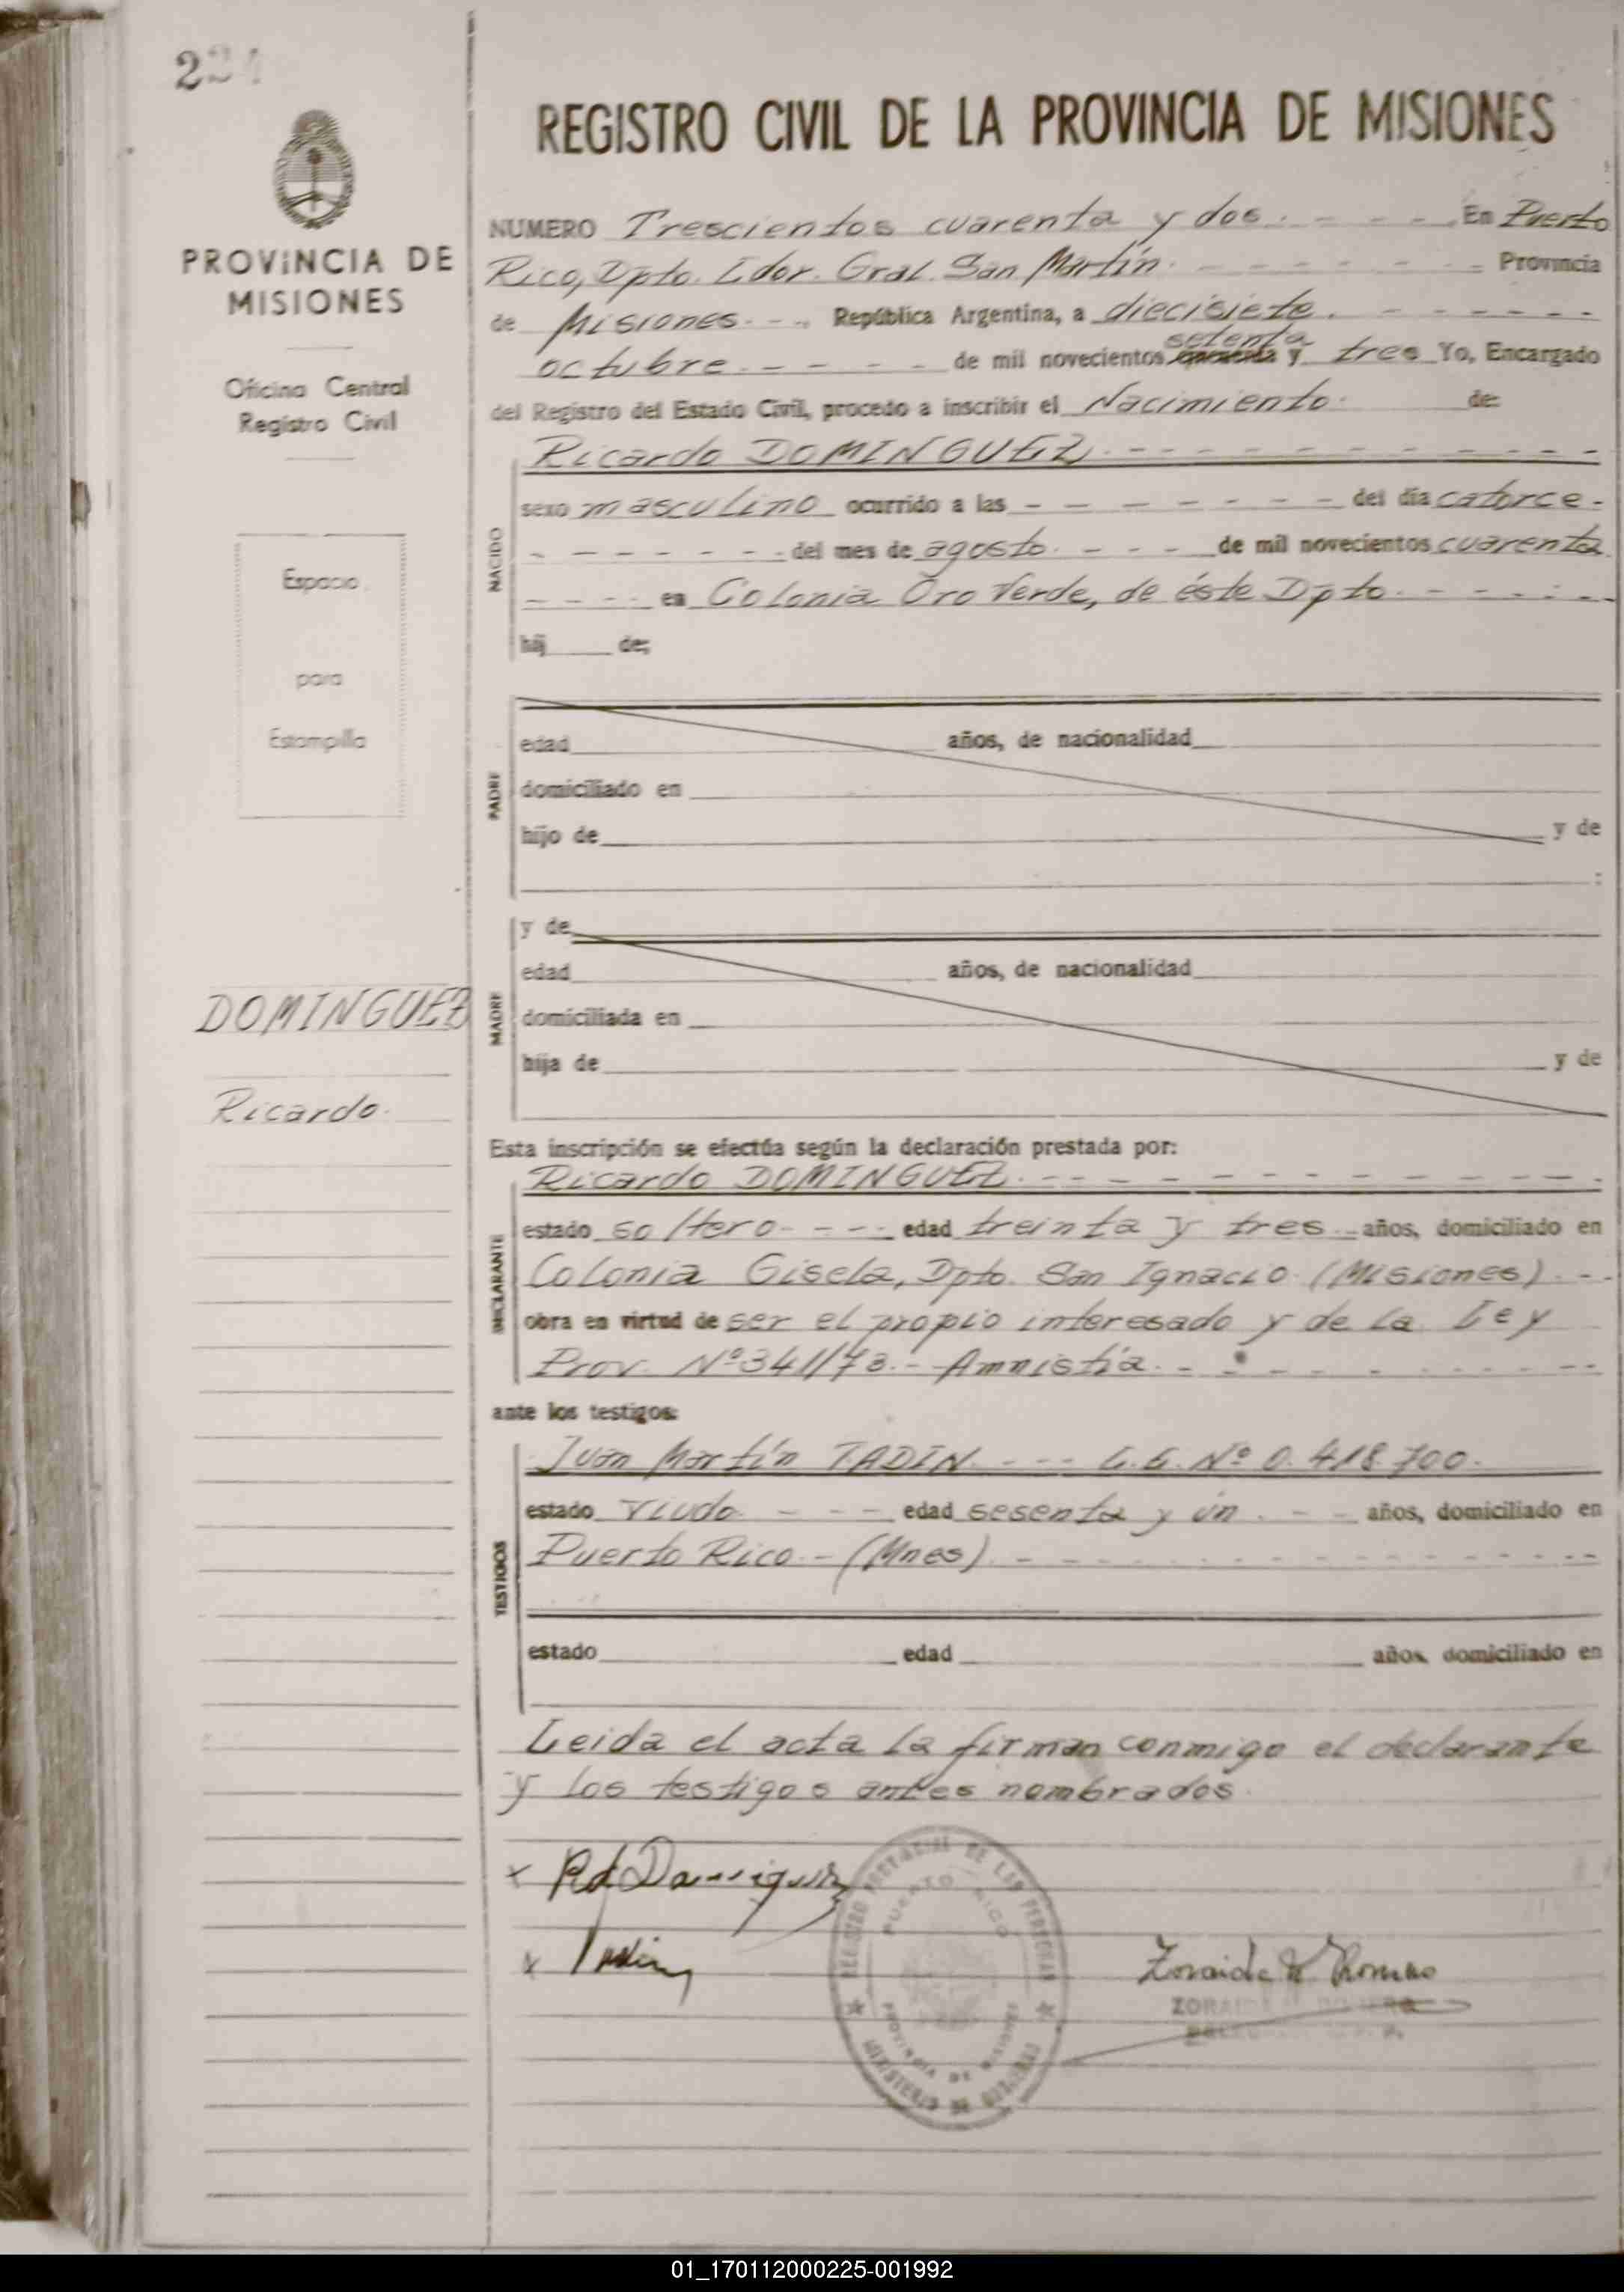 REGISTRO CIVIL DE LA PROVINCIA DE MISIONES
PROVINCIA DE
MISIONES
Oficina Central
Registro Civil
Espacio
para
Estampilla
DOMINGUEZ
Ricardo.
NUMERO Trescientos cuarenta y dos. - - - - En Puerto
Rico, Dpto. Ldor. Gral. San Martín. - - - - - - - Provincia
de Misiones. - -, República Argentina, a diecisiete. - - - - - -
setenta
octubre. - - - - - de mil novecientos y tres Yo, Encargado
del Registro del Estado Civil, procedo a inscribir el Nacimiento. de:
Ricardo DOMINGUEZ. - - - - - - - - - - - -
NACIDO
sexo masculino ocurrido a las - - - - - - - - del día catorce -
- - - - - - - del mes de agosto. - - - de mil novecientos cuarenta
- - - - en Colonia Oro Verde, de éste Dpto. - - - - - -
hij de;
PADRE
edad años, de nacionalidad
domiciliado en
hijo de y de
MADRE
y de
edad años, de nacionalidad
domiciliada en
hija de y de
Esta inscripción se efectúa según la declaración prestada por:
DECLARANTE
Ricardo DOMINGUEZ. - - - - - - - - - - - -
estado soltero - - - - edad treinta y tres - años, domiciliado en
Colonia Gisela, Dpto. San Ignacio (Misiones). - -
obra en virtud de ser el propio interesado y de la Ley
Prov. Nº 341/73. - Amnistía. - - - - - - - - -
ante los testigos:
TESTIGOS
Juan Martín TADIN. - - - L.E. Nº 0.418.700.
estado Viudo. - - - edad sesenta y ún. - - años, domiciliado en
Puerto Rico - (Mnes). - - - - - - - - - - - - -
estado edad años, domiciliado en
Leida el acta la firman conmigo el declarante
y los testigos antes nombrados.
x Rd. Dominguez
x
REGISTRO PROVINCIAL DE LAS PERSONAS
PUERTO RICO
PROVINCIA DE MISIONES
MINISTERIO DE GOBIERNO
Zoraida
01_170112000225-001992